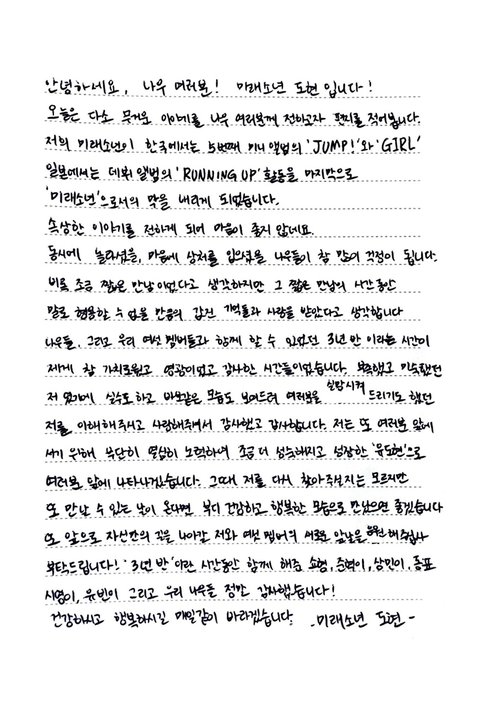 안녕하세요, 나우 여러분! 미래소년 도현입니다!
오늘은 다소 무거운 이야기를 나우 여러분께 전하고자 편지를 적어봅니다.
저희 미래소년이 한국에서는 5번째 미니앨범의 'JUMP!'와 'GIRL'
일본에서는 데뷔 앨범의 'RUNNING UP' 활동을 마지막으로
'미래소년'으로서의 막을 내리게 되었습니다.
속상한 이야기를 전하게 되어 마음이 좋지 않네요.
동시에 놀라셨을, 마음에 상처를 입으셨을 나우들이 참 많이 걱정이 됩니다.
비록 조금 짧은 만남이었다고 생각하지만 그 짧은 만남의 시간동안
말로 형용할 수 없을 만큼의 값진 기억들과 사랑을 받았다고 생각합니다
나우들, 그리고 우리 여섯 멤버들과 함께 할 수 있었던 3년 반 이라는 시간이
제게 참 가치로웠고 영광이었고 감사한 시간들이었습니다. 부족했고 미숙했던
저 였기에 실수도 하고 바보같은 모습도 보여드려 여러분을 실망시켜 드리기도 했던
저를 이해해주시고 사랑해주셔서 감사했고 감사합니다. 저는 또 여러분 앞에
서기 위해 부단히 열심히 노력하여 조금 더 성숙해지고 성장한 '유도현'으로
여러분 앞에 나타나겠습니다. 그때 저를 다시 찾아주실지는 모르지만
또 만날 수 있는 날이 온다면 부디 건강하고 행복한 모습으로 만났으면 좋겠습니다
또 앞으로 자신만의 꿈을 나아갈 저와 여섯 멤버의 새로운 앞날을 응원해주십사
부탁드립니다! '3년 반'이란 시간동안 함께 해준 손형, 준혁이, 상민이, 동표
시영이, 유빈이 그리고 우리 나우들 정말 감사했습니다!
건강하시고 행복하시길 매일같이 바라겠습니다. -미래소년 도현-